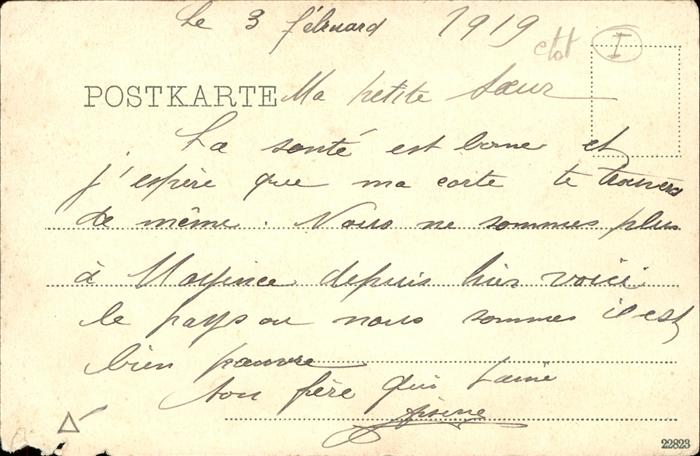 Le 3 février 1919
etat I
POSTKARTE Ma petite sœur
La santé est bonne et
j'espère que ma carte te trouvera
de même. Nous ne sommes plus
à Mayence depuis hier voici
le pays ou nous sommes il est
bien pauvre
ton frère qui t'aime
22823